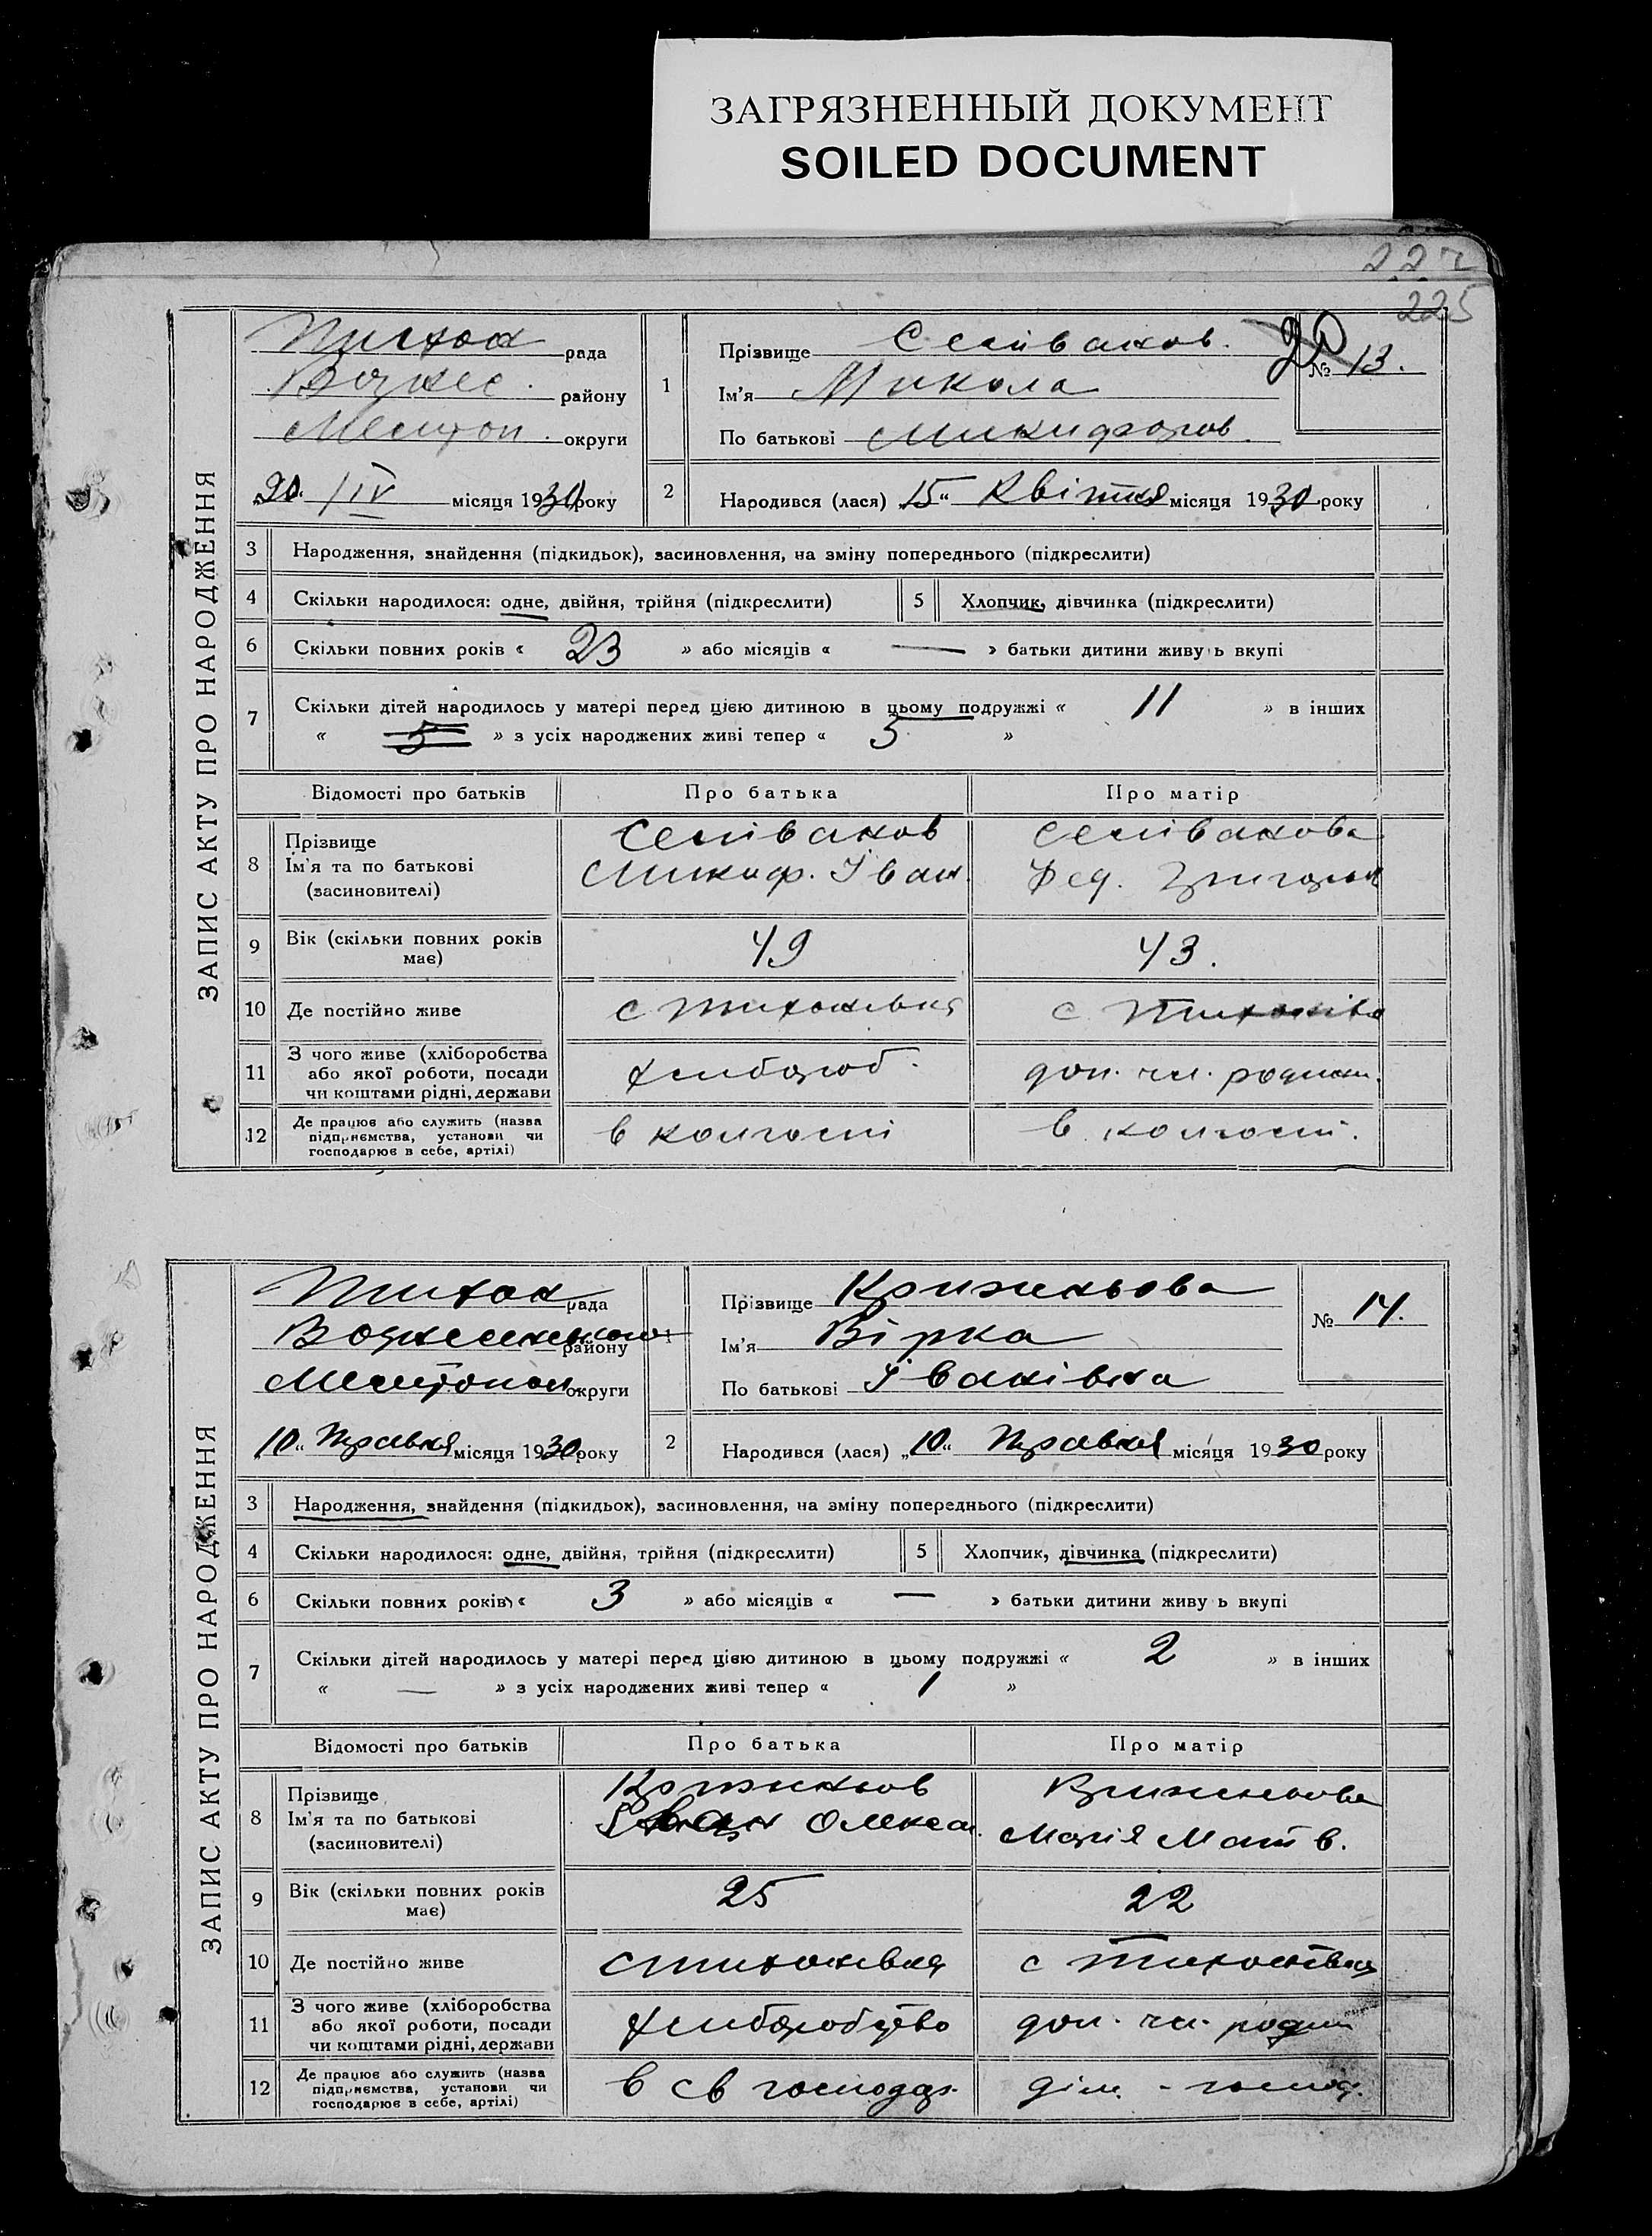 ЗАГРЯЗНЕННЫЙ ДОКУМЕНТ
SOILED DOCUMENT
227
225
ЗАПИС АКТУ ПРО НАРОДЖЕННЯ
Тихон рада
Вознес. району
Мелітоп. округи
„20“ /IV місяця 1930 року
1
Прізвище Селіванов.
Ім'я Микола
По батькові Микифоров.
20
№ 13.
2 Народився (лася) „15“ Квітня місяця 1930 року
3 Народження, знайдення (підкидьок), засиновлення, на зміну попереднього (підкреслити)
4 Скільки народилося: одне, двійня, трійня (підкреслити) 5 Хлопчик, дівчинка (підкреслити)
6 Скільки повних років « 23 » або місяців « — » батьки дитини живуть вкупі
7 Скільки дітей народилось у матері перед цією дитиною в цьому подружжі « 11 » в інших
« 5 » з усіх народжених живі тепер « 5 »
Відомості про батьків Про батька Про матір
8 Прізвище
Ім'я та по батькові
(засиновителі)
Селіванов
Микиф. Іван.
Селіванова
Фед. Григор
9 Вік (скільки повних років
має)
49
43.
10 Де постійно живе с Тихонівка с Тихонівка
11 З чого живе (хліборобства
або якої роботи, посади
чи коштами рідні, держави
хлібороб.
доп. чл. родини.
12 Де працює або служить (назва
підприємства, установи чи
господарює в себе, артілі)
в колгоспі
в колгосп.
ЗАПИС АКТУ ПРО НАРОДЖЕННЯ
Тихон рада
Вознесенського району
Мелітопол. округи
„10“ Травня місяця 1930 року
1
Прізвище Крижньова
Ім'я Вірка
По батькові Іванівна
№ 14.
2 Народився (лася) „10“ Травня місяця 1930 року
3 Народження, знайдення (підкидьок), засиновлення, на зміну попереднього (підкреслити)
4 Скільки народилося: одне, двійня, трійня (підкреслити) 5 Хлопчик, дівчинка (підкреслити)
6 Скільки повних років « 3 » або місяців « — » батьки дитини живуть вкупі
7 Скільки дітей народилось у матері перед цією дитиною в цьому подружжі « 2 » в інших
« — » з усіх народжених живі тепер « 1 »
Відомості про батьків Про батька Про матір
8 Прізвище
Ім'я та по батькові
(засиновителі)
Іван Олексан.
Марія Матв.
9 Вік (скільки повних років
має)
25
22
10 Де постійно живе с Тихонівка с Тихонівка
11 З чого живе (хліборобства
або якої роботи, посади
чи коштами рідні, держави
хліборобство
доп. чл. родин
12 Де працює або служить (назва
підприємства, установи чи
господарює в себе, артілі)
в св господар.